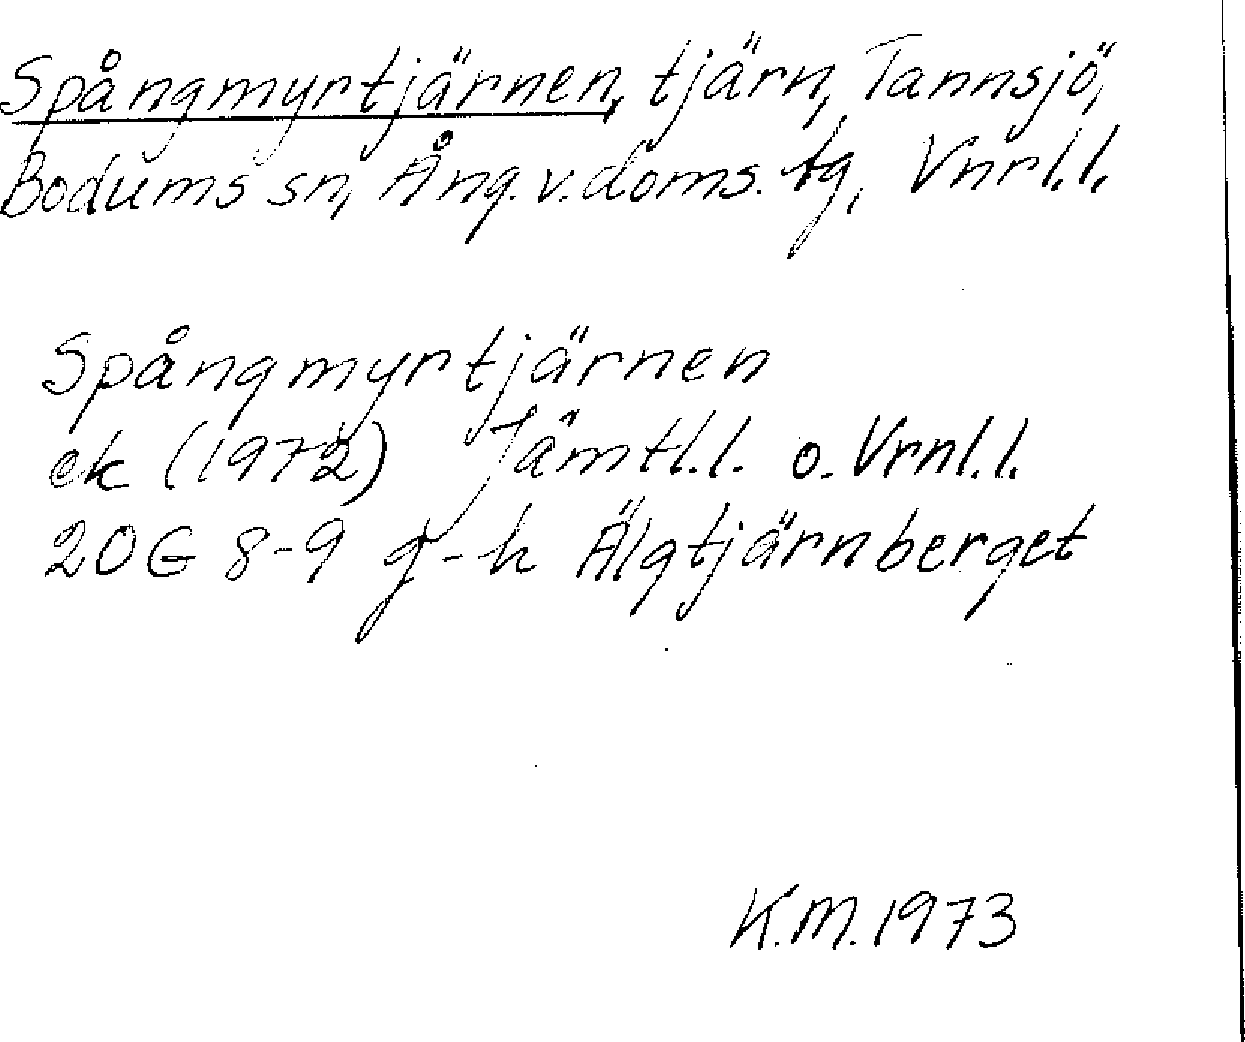 Spångmyrtjärnen, tjärn, Tannsjö,
Bodums sn, Ång. v. doms. tg, Vnrl.l.
Spångmyrtjärnen
ek (1972) Jämtl.l. o. Vrnl.l.
20G 8-9 g-h Älgtjärnberget
K.M. 1973